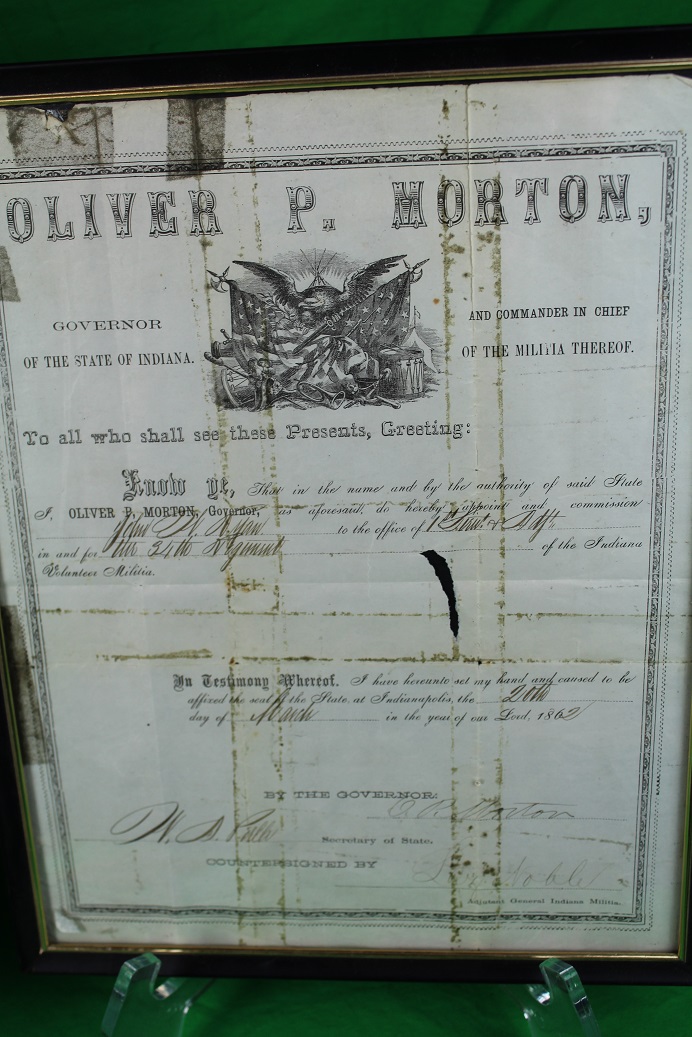 OLIVER P. MORTON,
GOVERNOR
OF THE STATE OF INDIANA.
AND COMMANDER IN CHIEF
OF THE MILITIA THEREOF.
To all who shall see these Presents, Greeting:
Know ye, That in the name and by the authority of said State
I, OLIVER P. MORTON, Governor, as aforesaid, do hereby appoint and commission
John to the office of 1st
in and for the 34th Regiment of the Indiana
Volunteer Militia.
In Testimony Whereof, I have hereunto set my hand and caused to be
affixed the seal of the State, at Indianapolis, the 20th
day of March in the year of our Lord, 1862
BY THE GOVERNOR:
O. P. Morton
W. A. Secretary of State.
COUNTERSIGNED BY
Noble
Adjutant General Indiana Militia.